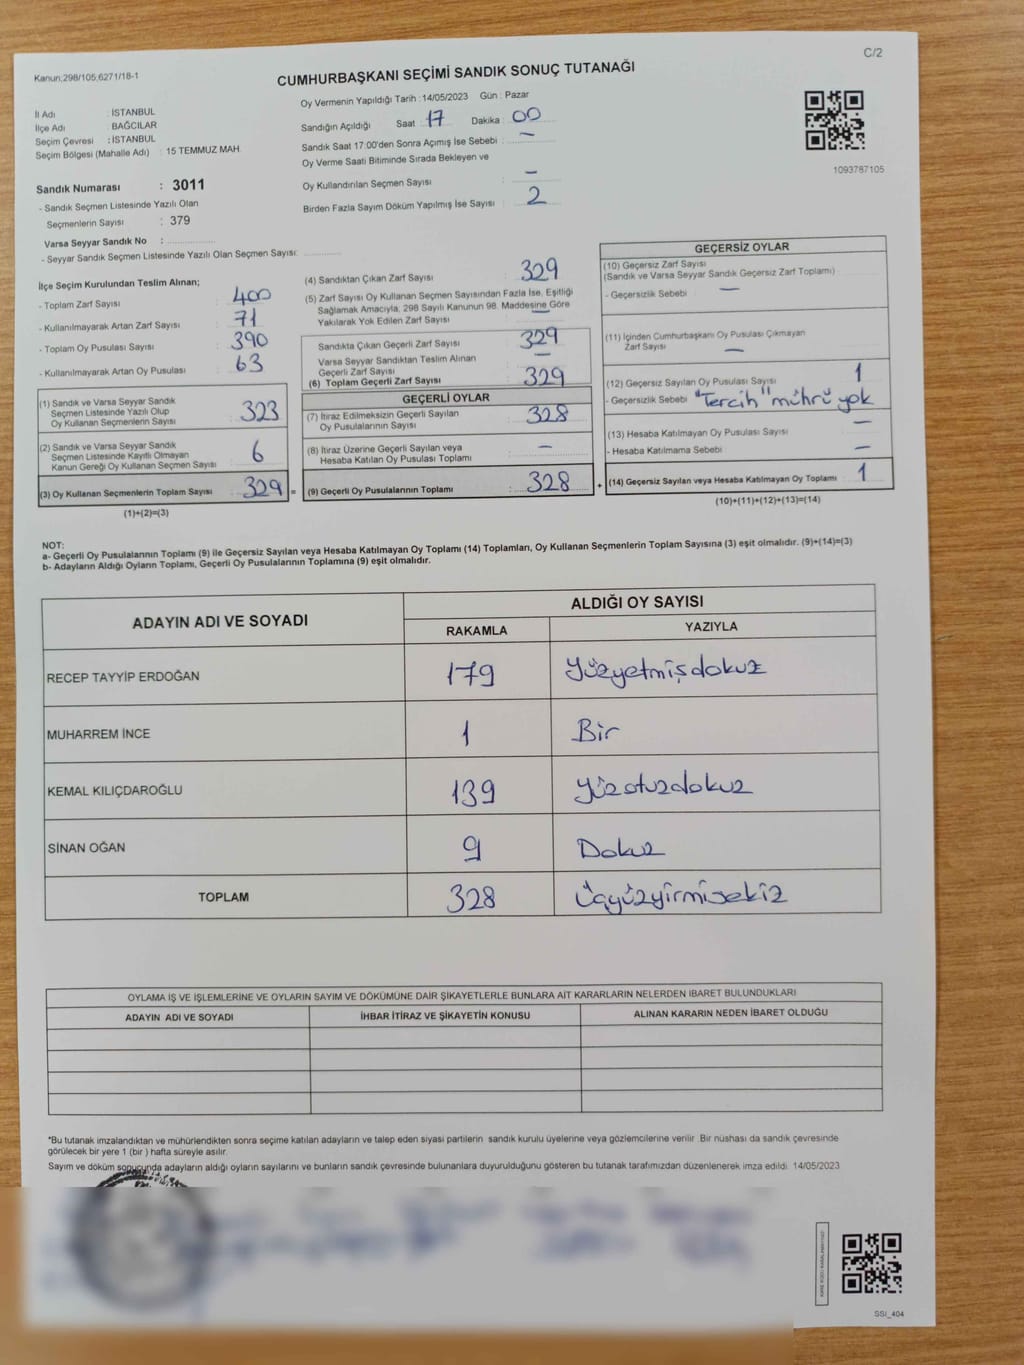 C/2
Kanun;298/105,6271/18-1
CUMHURBAŞKANI SEÇİMİ SANDIK SONUÇ TUTANAĞI
İl Adı : İSTANBUL
İlçe Adı : BAĞCILAR
Seçim Çevresi : İSTANBUL
Seçim Bölgesi (Mahalle Adı) : 15 TEMMUZ MAH.
Sandık Numarası : 3011
- Sandık Seçmen Listesinde Yazılı Olan
Seçmenlerin Sayısı : 379
Varsa Seyyar Sandık No :
- Seyyar Sandık Seçmen Listesinde Yazılı Olan Seçmen Sayısı:
Oy Vermenin Yapıldığı Tarih : 14/05/2023 Gün : Pazar
Sandığın Açıldığı Saat : 17 Dakika : 00
Sandık Saat 17:00'den Sonra Açımış İse Sebebi : —
Oy Verme Saati Bitiminde Sırada Bekleyen ve
Oy Kullandırılan Seçmen Sayısı : —
Birden Fazla Sayım Döküm Yapılmış İse Sayısı : 2
1093787105
İlçe Seçim Kurulundan Teslim Alınan;
- Toplam Zarf Sayısı : 400
- Kullanılmayarak Artan Zarf Sayısı : 71
- Toplam Oy Pusulası Sayısı : 390
- Kullanılmayarak Artan Oy Pusulası : 63
(1) Sandık ve Varsa Seyyar Sandık
Seçmen Listesinde Yazılı Olup
Oy Kullanan Seçmenlerin Sayısı : 323
(2) Sandık ve Varsa Seyyar Sandık
Seçmen Listesinde Kayıtlı Olmayan
Kanun Gereği Oy Kullanan Seçmen Sayısı : 6
(3) Oy Kullanan Seçmenlerin Toplam Sayısı : 329 =
(1)+(2)=(3)
(4) Sandıktan Çıkan Zarf Sayısı : 329
(5) Zarf Sayısı Oy Kullanan Seçmen Sayısından Fazla İse, Eşitliği
Sağlamak Amacıyla, 298 Sayılı Kanunun 98. Maddesine Göre
Yakılarak Yok Edilen Zarf Sayısı : —
Sandıkta Çıkan Geçerli Zarf Sayısı : 329
Varsa Seyyar Sandıktan Teslim Alınan
Geçerli Zarf Sayısı : —
(6) Toplam Geçerli Zarf Sayısı : 329
GEÇERLİ OYLAR
(7) İtiraz Edilmeksizin Geçerli Sayılan
Oy Pusulalarının Sayısı : 328
(8) İtiraz Üzerine Geçerli Sayılan veya
Hesaba Katılan Oy Pusulası Toplamı : —
(9) Geçerli Oy Pusulalarının Toplamı : 328 +
GEÇERSİZ OYLAR
(10) Geçersiz Zarf Sayısı
(Sandık ve Varsa Seyyar Sandık Geçersiz Zarf Toplamı)
- Geçersizlik Sebebi : —
(11) İçinden Cumhurbaşkanı Oy Pusulası Çıkmayan
Zarf Sayısı : —
(12) Geçersiz Sayılan Oy Pusulası Sayısı : 1
- Geçersizlik Sebebi : "Tercih" mührü yok
(13) Hesaba Katılmayan Oy Pusulası Sayısı : —
- Hesaba Katılmama Sebebi : —
(14) Geçersiz Sayılan veya Hesaba Katılmayan Oy Toplamı : 1
(10)+(11)+(12)+(13)=(14)
NOT:
a- Geçerli Oy Pusulalarının Toplamı (9) ile Geçersiz Sayılan veya Hesaba Katılmayan Oy Toplamı (14) Toplamları, Oy Kullanan Seçmenlerin Toplam Sayısına (3) eşit olmalıdır. (9)+(14)=(3)
b- Adayların Aldığı Oyların Toplamı, Geçerli Oy Pusulalarının Toplamına (9) eşit olmalıdır.
ADAYIN ADI VE SOYADI ALDIĞI OY SAYISI
RAKAMLA YAZIYLA
RECEP TAYYİP ERDOĞAN 179 Yüzyetmişdokuz
MUHARREM İNCE 1 Bir
KEMAL KILIÇDAROĞLU 139 Yüzotuzdokuz
SİNAN OĞAN 9 Dokuz
TOPLAM 328 Üçyüzyirmisekiz
OYLAMA İŞ VE İŞLEMLERİNE VE OYLARIN SAYIM VE DÖKÜMÜNE DAİR ŞİKAYETLERLE BUNLARA AİT KARARLARIN NELERDEN İBARET BULUNDUKLARI
ADAYIN ADI VE SOYADI İHBAR İTİRAZ VE ŞİKAYETİN KONUSU ALINAN KARARIN NEDEN İBARET OLDUĞU
*Bu tutanak imzalandıktan ve mühürlendikten sonra seçime katılan adayların ve talep eden siyasi partilerin sandık kurulu üyelerine veya gözlemcilerine verilir. Bir nüshası da sandık çevresinde
görülecek bir yere 1 (bir ) hafta süreyle asılır.
Sayım ve döküm sonucunda adayların aldığı oyların sayılarını ve bunların sandık çevresinde bulunanlara duyurulduğunu gösteren bu tutanak tarafımızdan düzenlenerek imza edildi. 14/05/2023
SSI_404